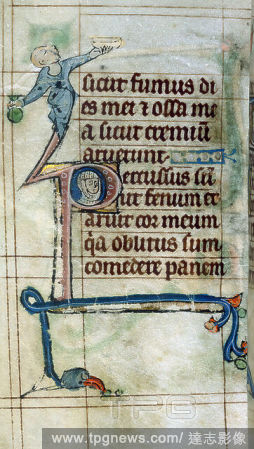 sicut fumus di
es mei ⁊ ossa me
a sicut cremiũ
aruerunt.
Percussus sũ
ut fenum et
aruit cor meum
q̃a oblitus sum
comedere panem
TPG
www.tpgnews.com/ 達志影像